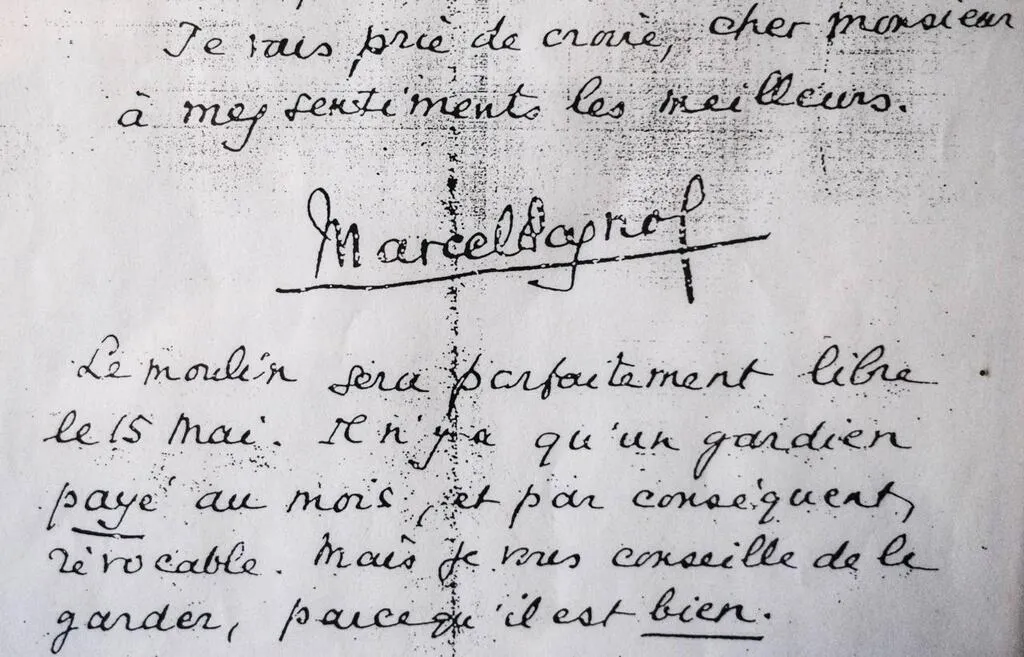 Je vous prie de croire, cher monsieur
à mes sentiments les meilleurs.
Marcel Pagnol
Le moulin sera parfaitement libre
le 15 Mai. Il n'y a qu'un gardien
payé au mois, et par conséquent,
révocable. Mais je vous conseille de le
garder, parcequ'il est bien.